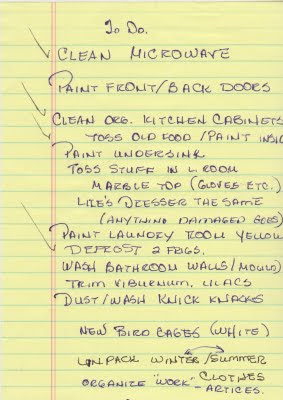 To Do.
CLEAN MICROWAVE
PAINT FRONT/BACK DOORS
CLEAN ORG. KITCHEN CABINETS
TOSS OLD FOOD/PAINT INSID
PAINT UNDERSINK
TOSS STUFF IN L ROOM
MARBLE TOP (GLOVES ETC.)
LILE'S DRESSER THE SAME
(ANYTHING DAMAGED GOES)
PAINT LAUNDRY ROOM YELLOW
DEFROST 2 FRGS.
WASH BATHROOM WALLS/MOULD)
TRIM VIBURNUM, LILACS
DUST/WASH KNICK KNACKS
NEW BIRD CAGES (WHITE)
UNPACK WINTER/SUMMER
CLOTHES
ORGANIZE "WORK" - ARTICES.